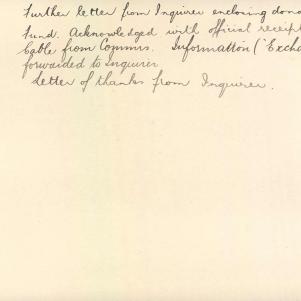 Further letter from Inquirer enclosing dona
Fund. Acknowledged with official receipt
Cable from Commrs. Information ("Excha
forwarded to Inquirer
Letter of thanks from Inquirer.